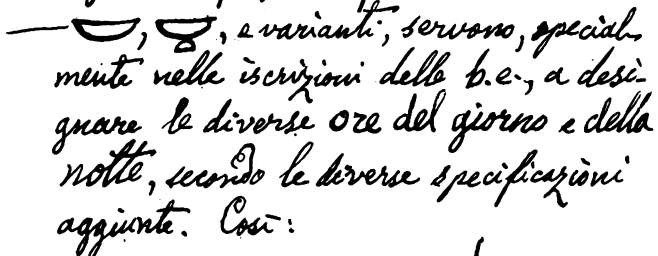 —, , e varianti, servono, special-
mente nelle iscrizioni delle b.e., a desi-
gnare le diverse ore del giorno e della
notte, secondo le diverse specificazioni
aggiunte. Così: